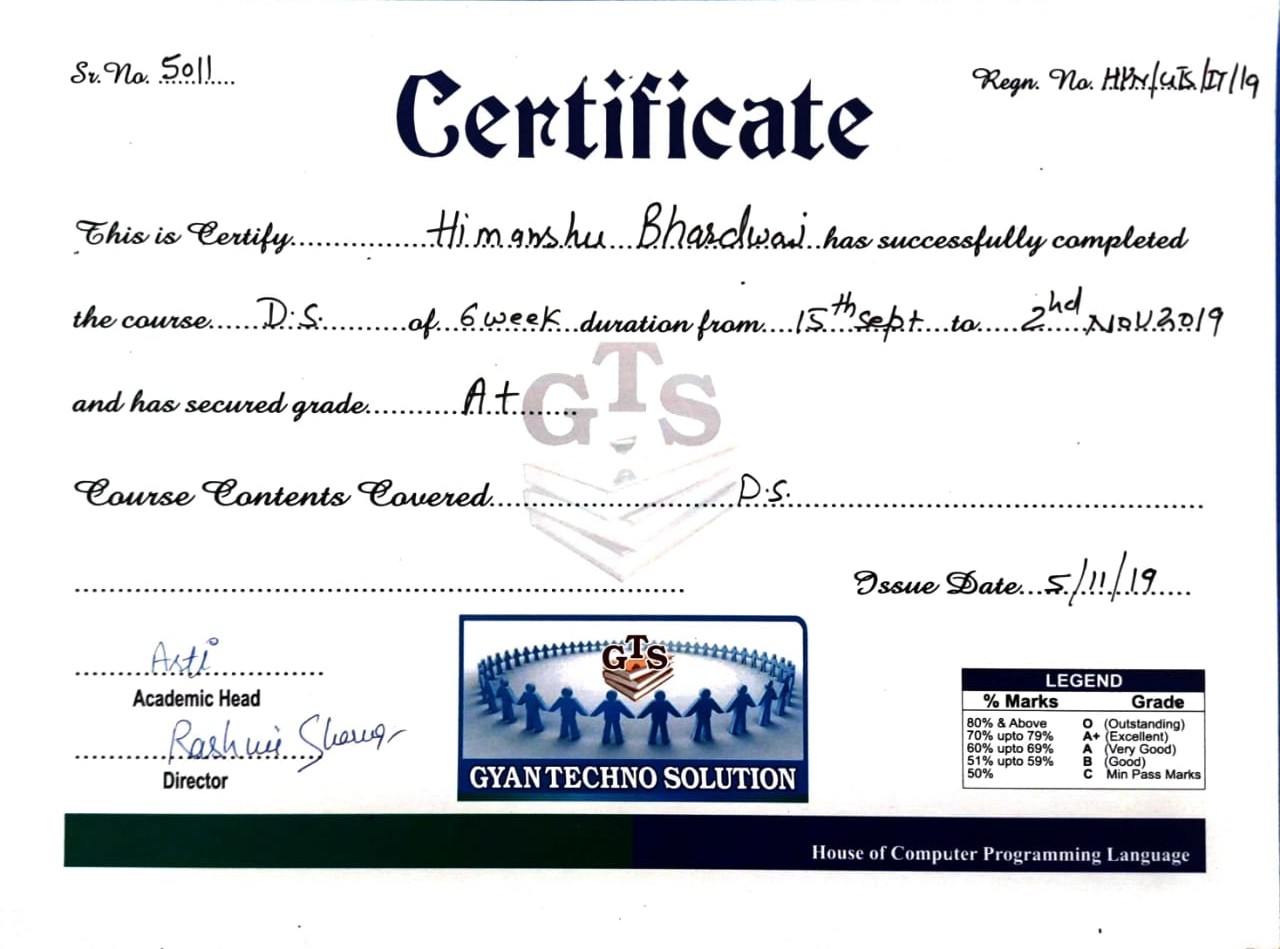 Sr. No. 5011
Regn. No.
Certificate
This is Certify Himanshu Bhardwaj has successfully completed
the course D.S. of 6 week duration from 15th Sept to 2nd Nov 2019
and has secured grade A+
GTS
Course Contents Covered D.S.
Issue Date 5/11/19
Arti
Academic Head
Rashmi Sharma
Director
GTS
GYAN TECHNO SOLUTION
LEGEND
% Marks Grade
80% & Above O (Outstanding)
70% upto 79% A+ (Excellent)
60% upto 69% A (Very Good)
51% upto 59% B (Good)
50% C Min Pass Marks
House of Computer Programming Language